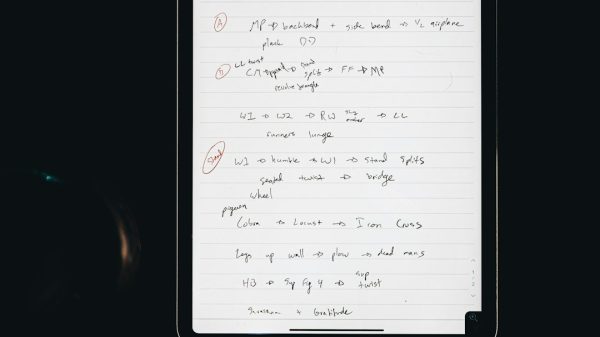 A MP → backbend + side bend → 1/2 airplane
plank
LL twist
→ splits → FF → MP
revolve
W1 → W2 → RW → LL
runners lunge
W1 → humble → W1 → stand splits
seated twist → bridge
wheel
pigeon
Cobra → Locust → Iron Cross
Legs up wall → plow → dead mans
HB → Sup Fig 4 → sup twist
Savasana + Gratitude